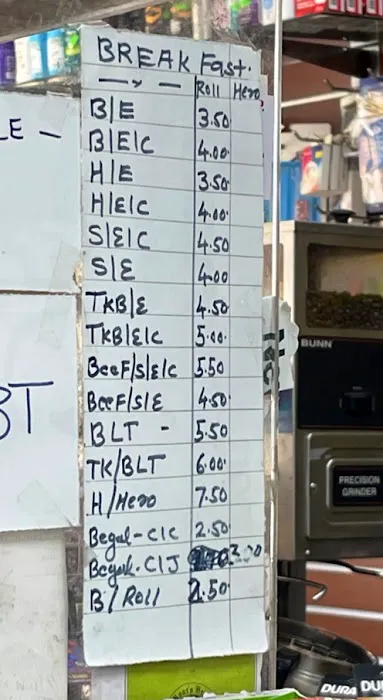 BREAK Fast.
Roll Hero
B|E 3.50
B|E|C 4.00
H|E 3.50
H|E|C 4.00
S|E|C 4.50
S|E 4.00
TKB|E 4.50
TKB|E|C 5.00
BeeF/S|E|C 5.50
BeeF/S|E 4.50
BLT - 5.50
TK/BLT 6.00
H/Hero 7.50
Begul-C|C 2.50
C|J
B/Roll 2.50
LE -
BT
BUNN
PRECISION
GRINDER
DURA DU